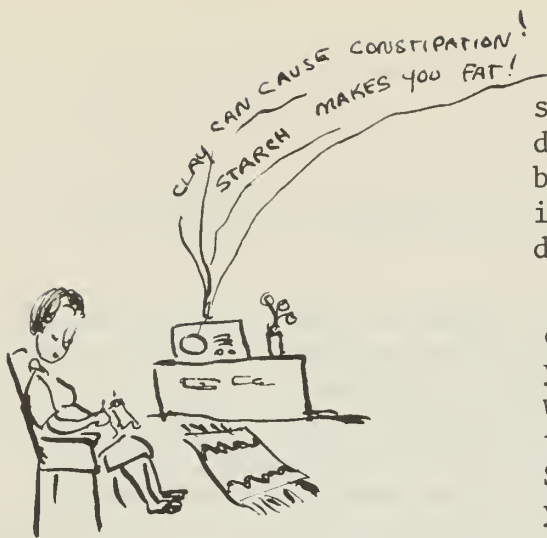 CLAY CAN CAUSE CONSTIPATION!
STARCH MAKES YOU FAT!
s
d
b
i
d
y
W
s